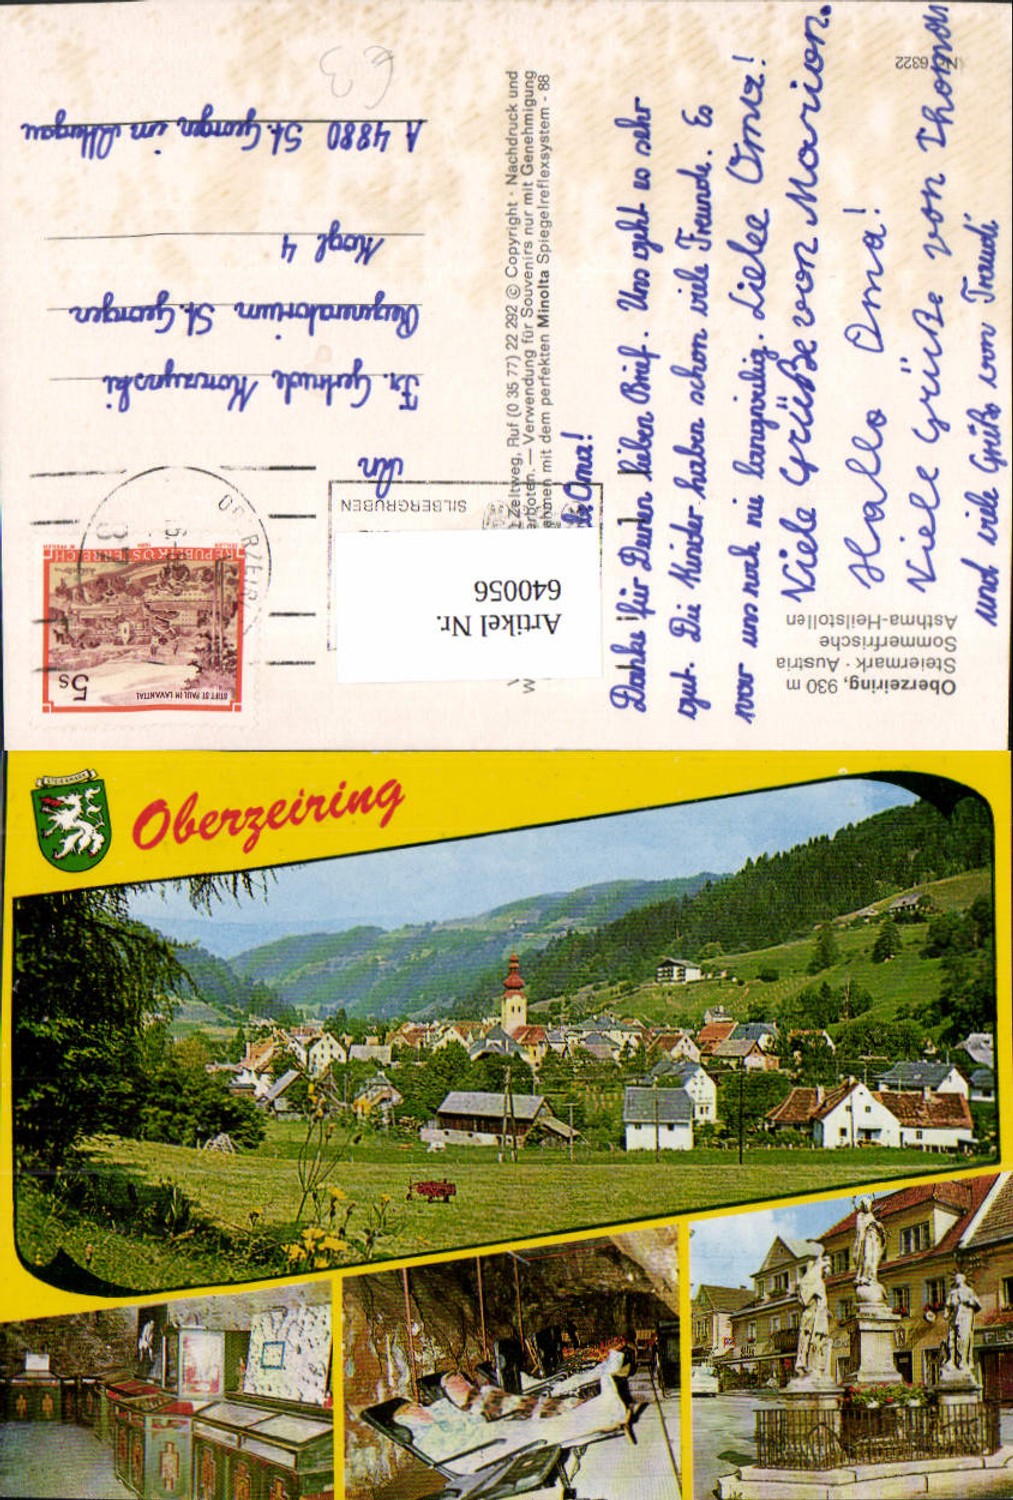 Oberzeiring, 930 m
Steiermark · Austria
Sommerfrische
Asthma-Heilstollen
Nr. 6322
Oma!
Danke für Deinen lieben Brief. Uns geht es sehr
gut. Die Kinder haben schon viele Freunde. Es
war uns noch nie langweilig. Liebe Oma!
Viele Grüße von Marion.
Hallo Oma!
Viele Grüße von Thomas
und viele Grüße von Traudi
Zeltweg, Ruf (0 35 77) 22 292 © Copyright · Nachdruck und
verboten. — Verwendung für Souvenirs nur mit Genehmigung
mit dem perfekten Minolta Spiegelreflexsystem - 88
SILBERGRUBEN
Artikel Nr.
640056
STIFT ST. PAUL IM LAVANTTAL
5s
REPUBLIK ÖSTERREICH
An
Fr. Gertrude
Regeneratorium St. Georgen
Kogl 4
A 4880 St. Georgen im Attergau
€3
STEIERMARK
Oberzeiring